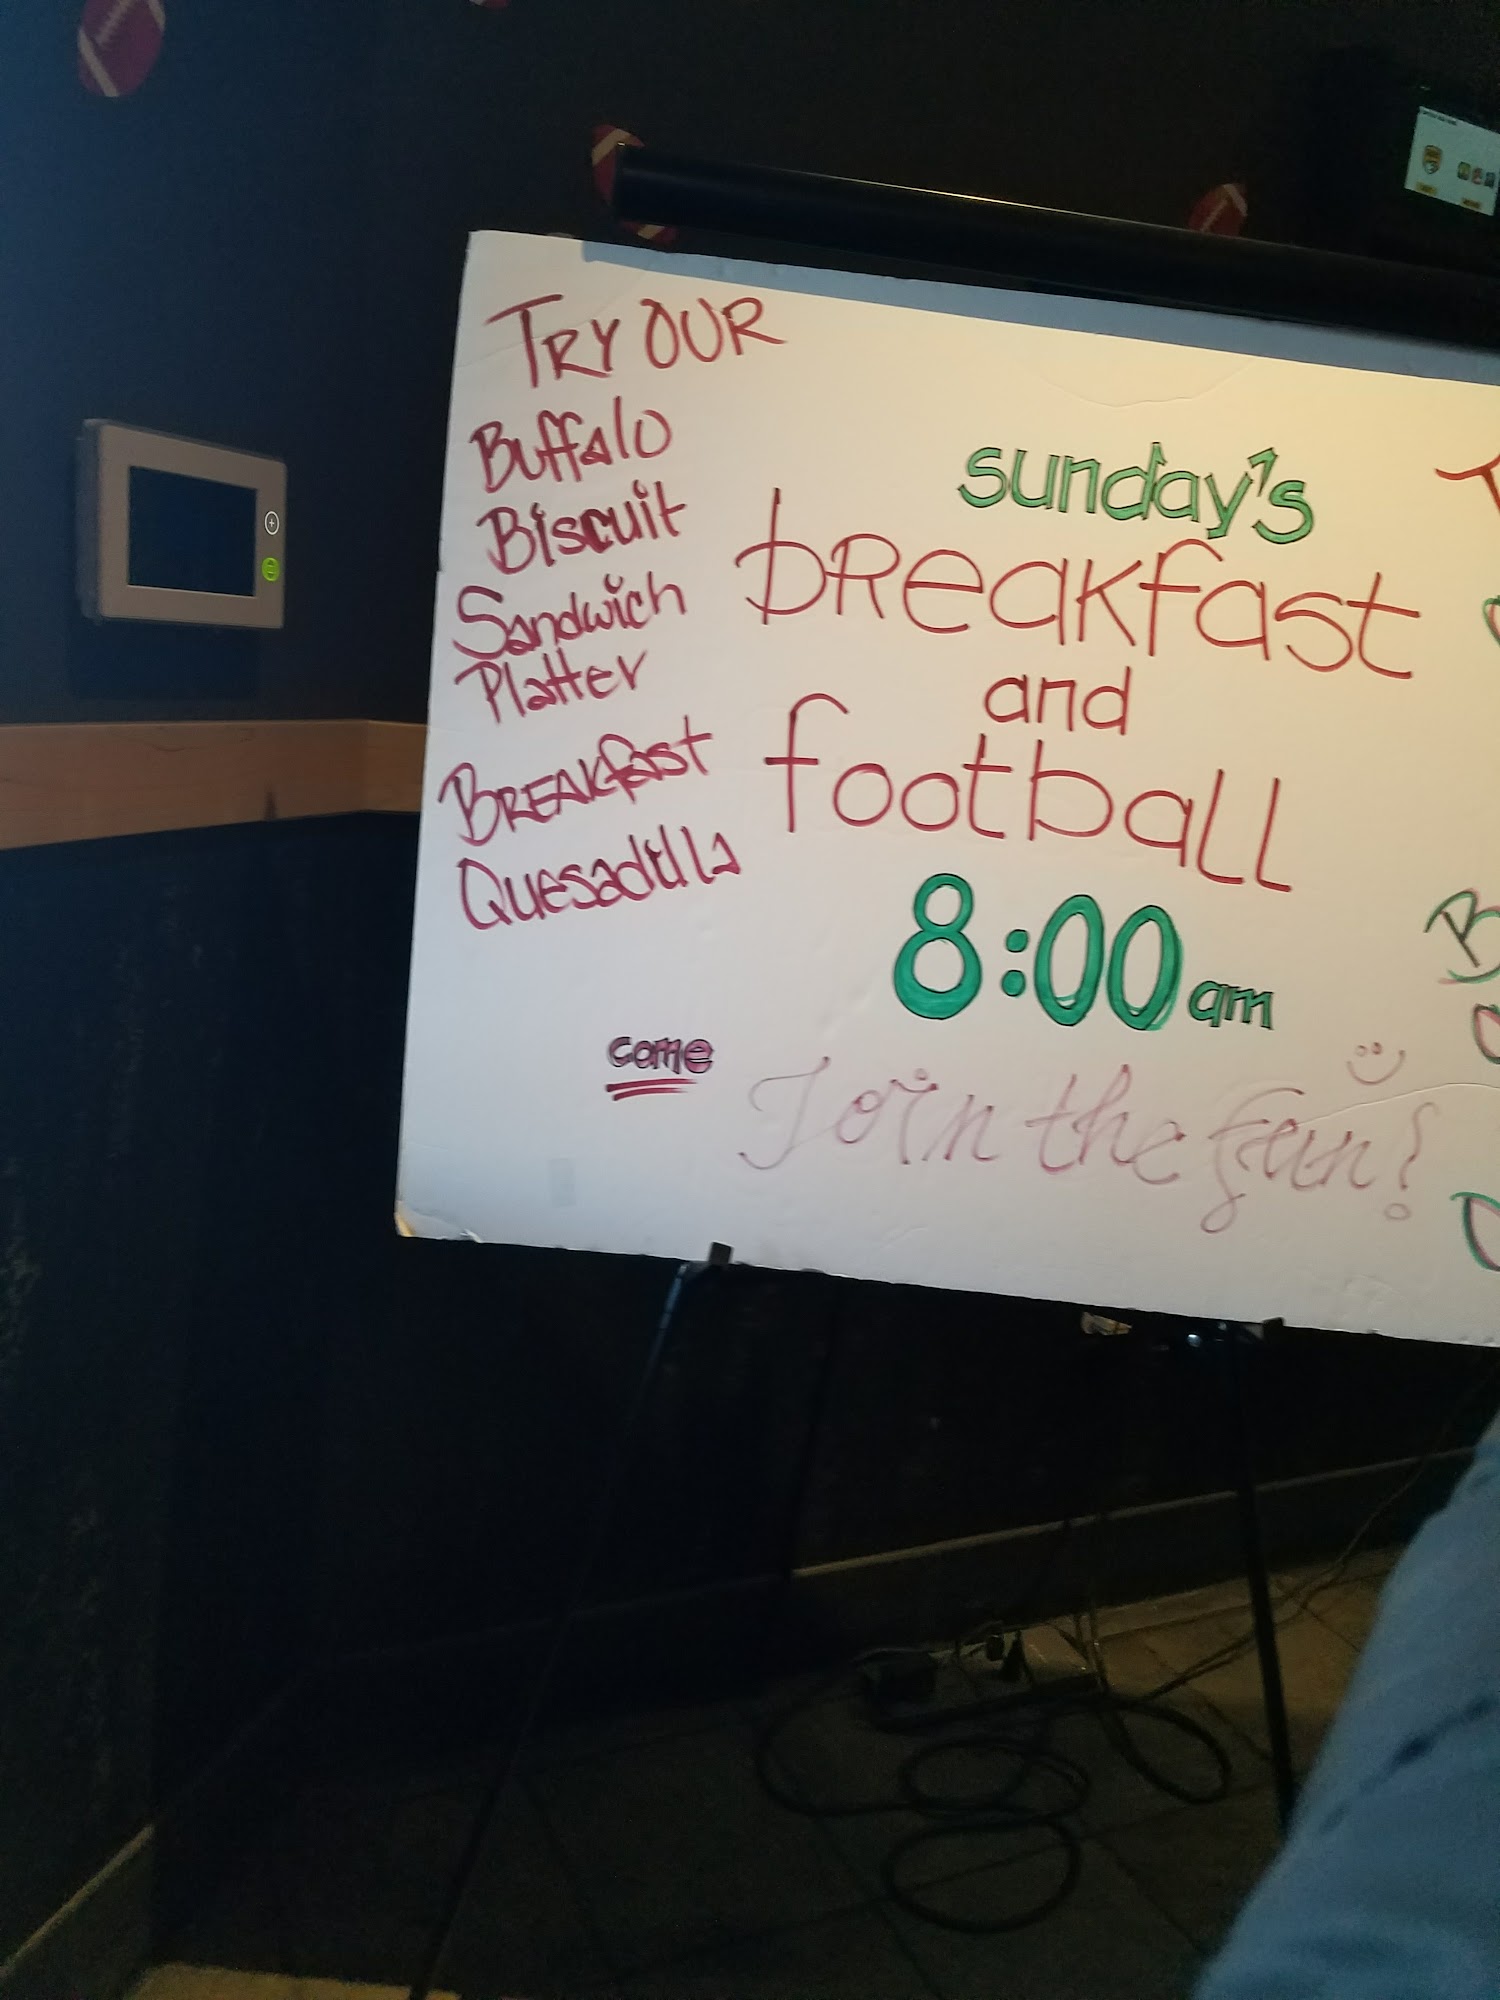 TRY OUR
Buffalo
Biscuit
Sandwich
Platter
BREAKfast
Quesadilla
sunday's
bReakfast
and
football
8:00 am
come
Join the fun!